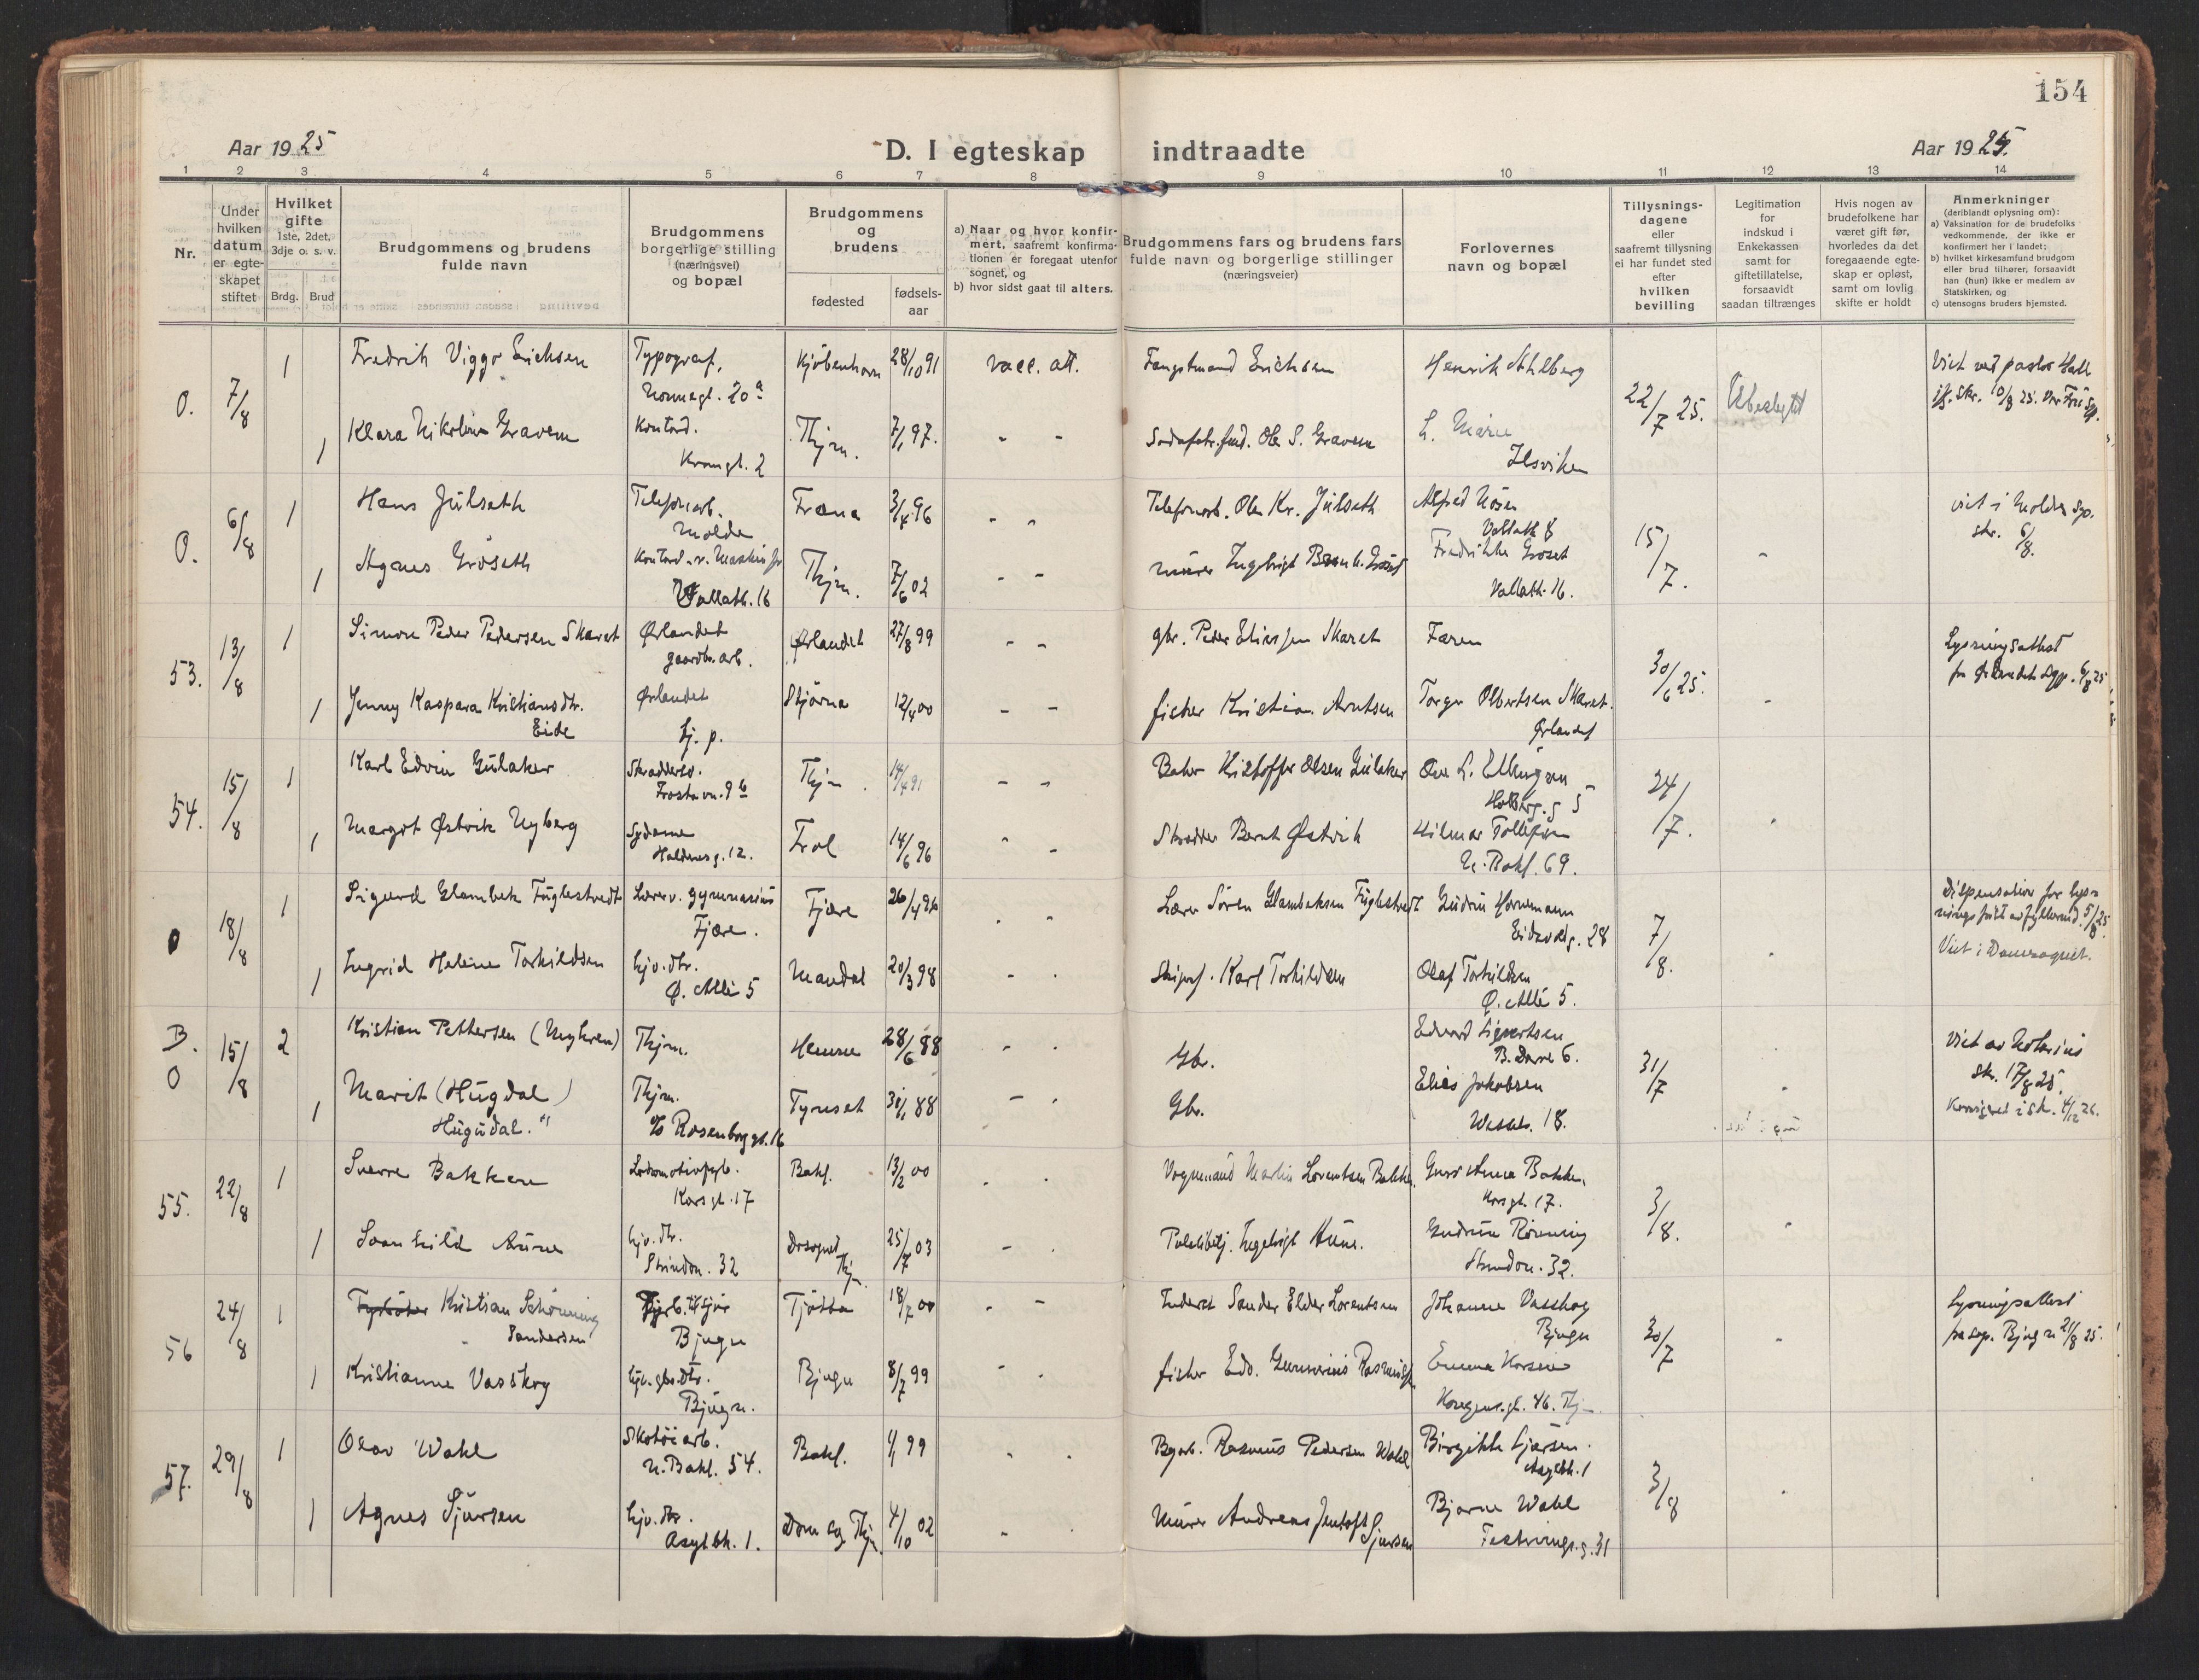 154
Aar 1925
D. I egteskap indtraadte
Aar 1925.
1 2 3 4 5 6 7 8 9 10 11 12 13 14
Nr.
Under hvilken datum er egteskapet stiftet
Hvilket gifte 1ste, 2det, 3dje o. s. v.
Brdg. Brud
Brudgommens og brudens fulde navn
Brudgommens borgerlige stilling (næringsvei) og bopæl
Brudgommens og brudens
fødested
fødsels-aar
a) Naar og hvor konfirmert, saafremt konfirmationen er foregaat utenfor sognet, og
b) hvor sidst gaat til alters.
Brudgommens fars og brudens fars fulde navn og borgerlige stillinger (næringsveier)
Forlovernes navn og bopæl
Tillysningsdagene eller saafremt tillysning ei har fundet sted efter hvilken bevilling
Legitimation for indskud i Enkekassen samt for giftetillatelse, forsaavidt saadan tiltrænges
Hvis nogen av brudefolkene har været gift før, hvorledes da det foregaaende egteskap er opløst, samt om lovlig skifte er holdt
Anmerkninger (deriblandt oplysning om):
a) Vaksination for de brudefolks vedkommende, der ikke er konfirmert her i landet;
b) hvilket kirkesamfund brudgom eller brud tilhører, forsaavidt han (hun) ikke er medlem av Statskirken, og
c) utensogns bruders hjemsted.
0. 7/8 1 Fredrik Viggo Erichsen Typograf, 20a Kjøbenhavn 28/10 91 vacc. att. Fangstmand Erichsen Henrik Ahlberg 22/7 25. Ubeslegtet Viet ved pastor Hall
1 Klara Nikoline Gravem Kontord. Krangt. 2 Thjm. 7/1 97. " " Ole S. Gravem L. Marie Ilsviken
0. 6/8 1 Hans Julseth Telefonarb. Molde Fræna 3/4 96 " " Telefonarb. Ole Kr. Julseth Alfred Vallath 8 15/7. " viet i Molde Sp. skr. 6/8.
1 Agnes Gröseth Vollath. 16 Thjm. 7/6 02 " " murer Ingebrigt Fredrikke Groset Vallath. 16.
53. 13/8 1 Simon Peder Pedersen Skaret Ørlandet gaardbr. arb. Ørlandet 27/8 99 " " gbr. Peder Eliassen Skaret Faren 30/6 25. " Lysningsattest fr Ørlandet Sgp. 6/8 25
1 Jenny Kaspara Kristiansdtr. Eide Ørlandet tj. p. Stjørna 12/4 00 " " fisker Kristian Arntsen Torger Olbertsen Skaret. Ørlandet
54. 15/8 1 Karl Edvin Gulaker Skræddersv. Frostavn. 9b Thjm. 14/4 91 " " Baker Kristoffer Olsen Gulaker Ove L. Ellingsen Holberg.g 5 24/7. "
1 Margot Østvik Nyberg Sydame Haldensg. 12. Frol 14/6 96 " " Skrædder Bernt Østvik Hilmar Tollefsen N. Bakl. 69.
0 18/8 1 Sigurd Glambek Fuglestvedt Lærer v. gymnasius Fjære. Fjære 26/4 96 " " Lærer Søren Glambeksen Fuglestvedt Gudrun Hornemann Eidsvoldg. 28 7/8. " Dispensation for lysningsfrist av fylkesmd. 5/8 25 Viet i Domsognet.
1 Ingrid Helene Torkildsen hjv. dtr. Ø. Allé 5 Mandal 20/3 98 " " Skipsf. Karl Torkildsen Olaf Torkildsen Ø. Allé 5.
B. 0 15/8 2 Kristian Pettersen (Myhren) Thjm. Hemne 28/6 88 " " Gbr. Edvard Sigvartsen B. Darre 6. 31/7 " Viet av Notarius skr. 17/8 25. Korrigeret i sk. 4/12 26.
1 Marit (Hugdal) Hugudal. Thjm. c/o Rosenborg gt. 16 Tynset 30/1 88 " " Gbr. Elias Jakobsen Wessels. 18.
55. 22/8 1 Sverre Bakken Lokomotivfyrb. Korsgt. 17 Bakl. 13/2 00 " " Vognmand Martin Lorentsen Bakken. Anna Bakken. Korsgt. 17. 3/8. "
1 Svanhild Aune hjv. dtr. Strindvn. 32 Domsognet Thjm. 25/7 03 " " Politibetj. Ingebrigt Aune. Gudrun Rönning Strindvn. 32.
56 24/8 1 Kristian Schønning Sandersen Bjugn Tjøtta 18/7 00 " " Inderst Sander Elder Lorentsen Johanne Vasskog Bjugn 30/7 " Lysningsattest fra sogp. Bjugn 21/8 25.
1 Kristianne Vasskog hjv. gbr. dtr. Bjugn. Bjugn 8/7 99 " " fisker Edv. Gunnerius Rasmussen Emma Korsen Kongensgt. 46. Thjm.
57. 29/8 1 Olav Wahl Skotøiarb. N. Bakl. 54. Bakl. 4/1 99 " " Bgarb. Rasmus Pedersen Wahl Birgitte Sjursen. Asylbk. 1 3/8 "
1 Agnes Sjursen hjv. dtr. Asylbk. 1. Dom sg Thjm. 4/10 02 " Murer Andreas Jentoft Sjursen Bjarne Wahl Festnings.g. 31